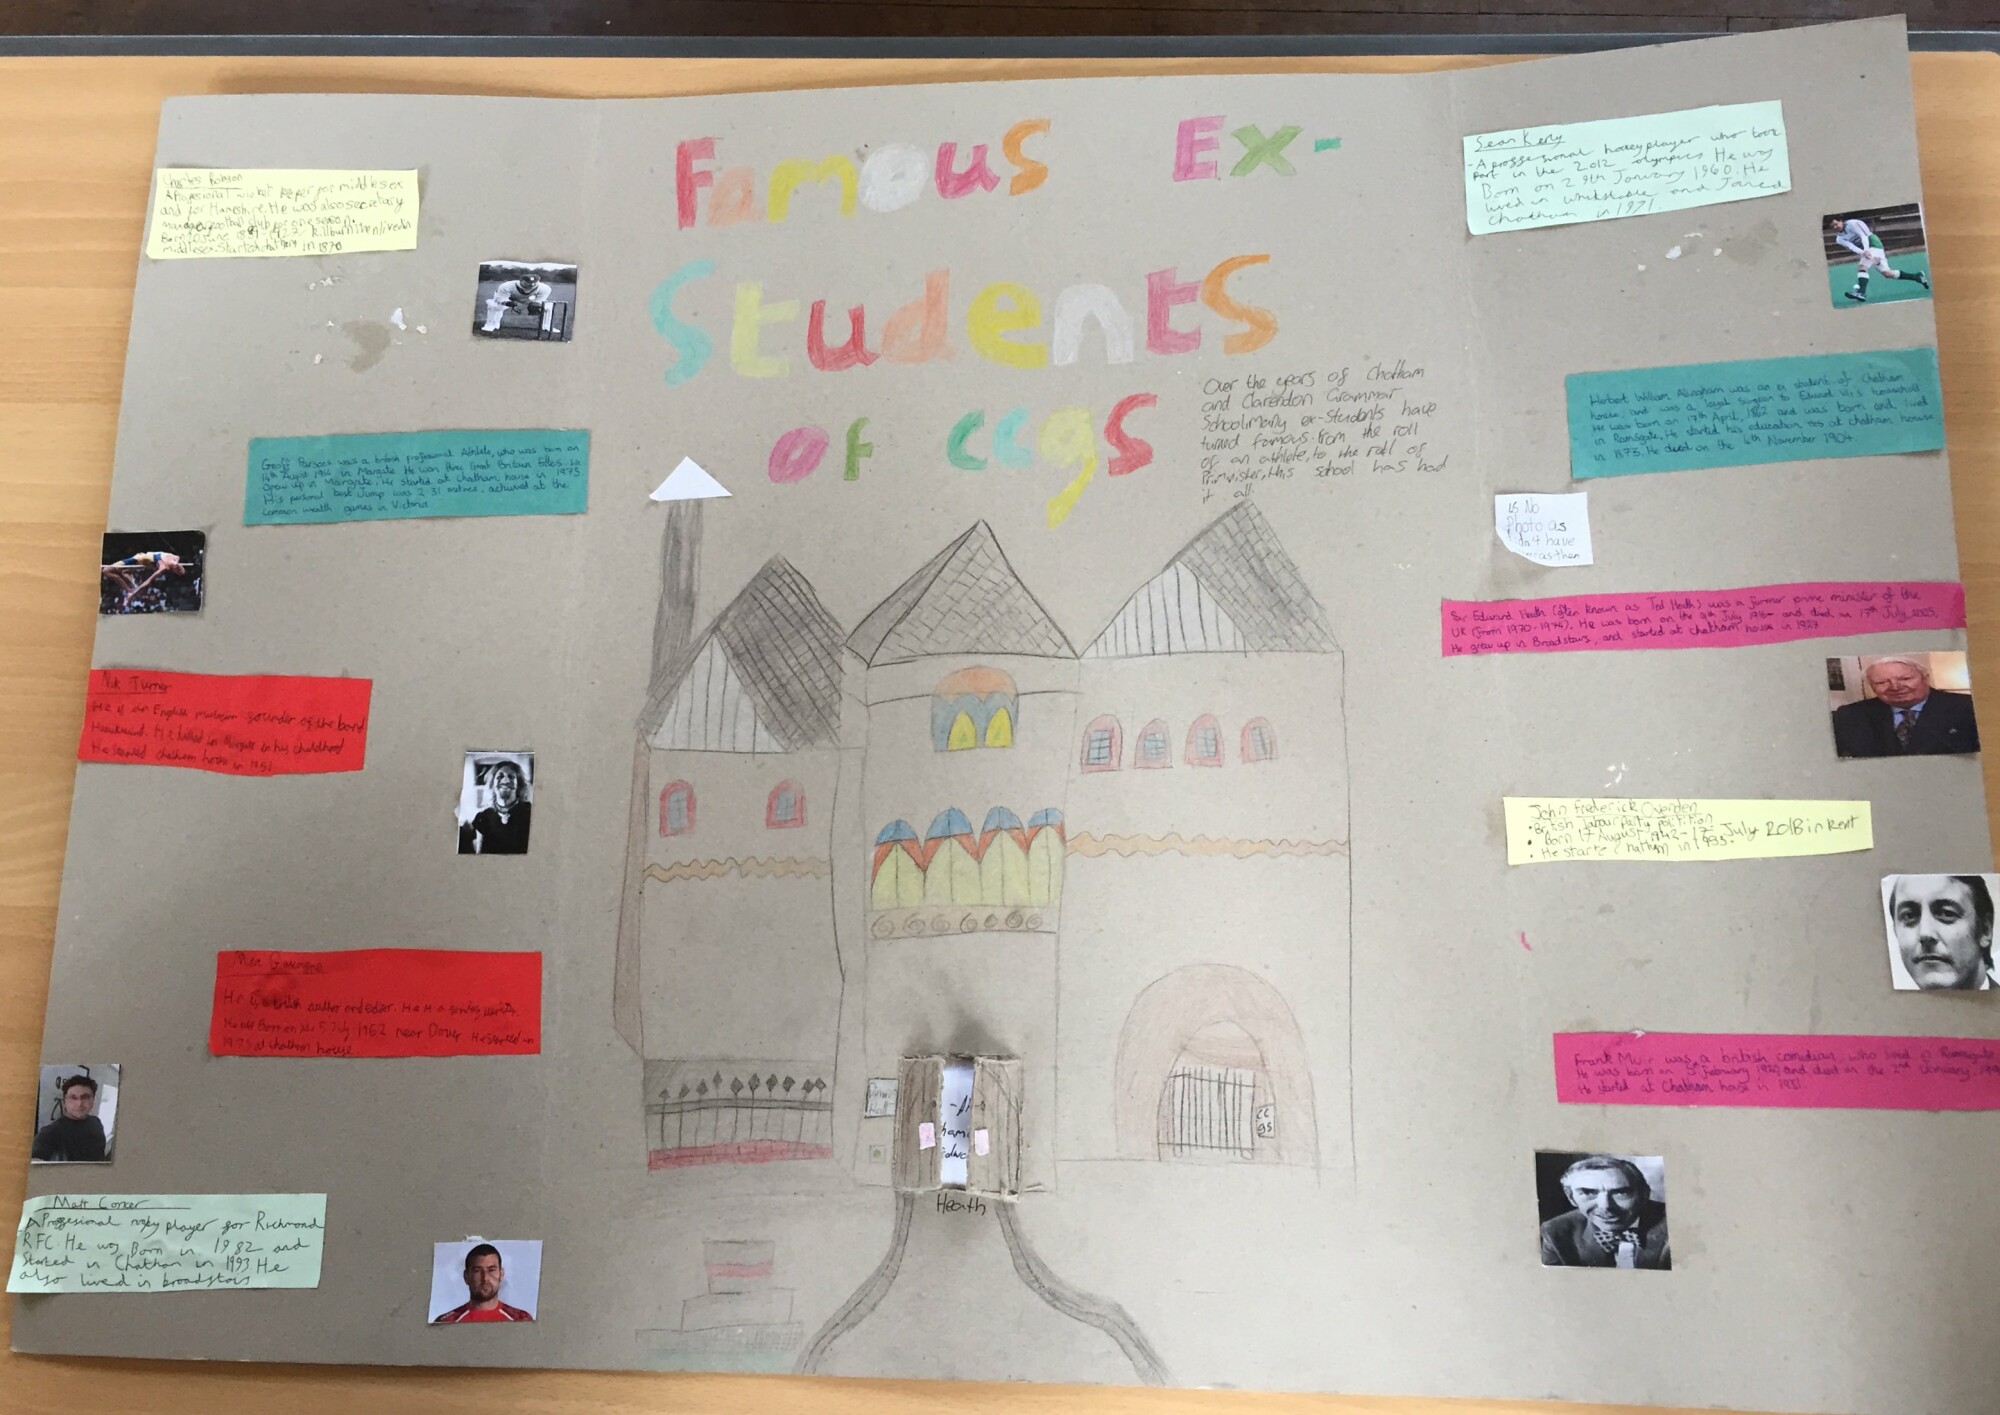 Famous Ex-
Students
of ccgs
Over the years of Chatham
and Clarendon Grammar
School many ex-students have
turned famous. from the roll
of an athlete, to the roll of
Priminister, this school has had
it all.
Charles Robson
A Profesional wicket keeper for middlesex
and for Hampshire. He was also secretary
manager football club for one season.
Born 1922 Kilburn then lived in
middlesex. Started chathem in 1870
Geoff Parsons was a british proffesional Athlete, who was born on
14th August 1964 in Margate. He won three Great Britain titles. He
grew up in Margate. He started at Chatham house in 1975
His personal best Jump was 2.31 metres, achieved at the
common wealth games in Victoria
Nik Turner
He is an English musician founder of the band
Hawkwind. He in Margate in his childhood
He started chatham house in 1951
He is a british author and editor. He
Born on 5 July 1962 near Dover. He started in
1973 at chatham house.
Matt Corker
A Proffesional rugby player for Richmond
RFC. He was Born in 1982 and
Started in Chatham in 1993 He
also lived in broadstairs
Sean Kerly
- A proffesional hockey player who took
part in the 2012 olympics He was
Born on 29th January 1960. He
lived in whitstable and Joined
Chatham in 1971.
Herbert William Allingham was an ex student of Chatham
house, and was a loyal surgeon to Edward VII's household
He was born on 17th April, 1862 and was born and lived
in Ramsgate. He started his education at chatham house
in 1873. He died on the 4th November 1904.
is No
Photo as
didn't have
as then
Sir Edward Heath (often known as Ted Heath) was a former prime minister of the
UK (from 1970-1974). He was born on the 9th July 1916 and died on 17th July 2005.
He grew up in Broadstairs, and started at chatham house in 1927
John Frederick Ovenden
• British labour party polition
• Born 17 August 1942 - 17 July 2018 in kent
• He starte Chathm in 1953.
Frank Muir was a british comidian, who lived in Ramsgate
He was born on 5th February 1920 and died on the 2nd January 199
He started at Chatham house in 1931
cc
gs
Heath